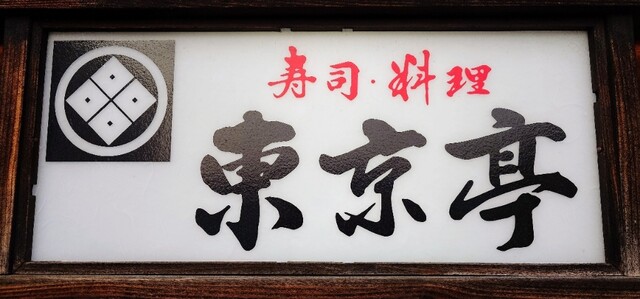 寿司・料理
東京亭